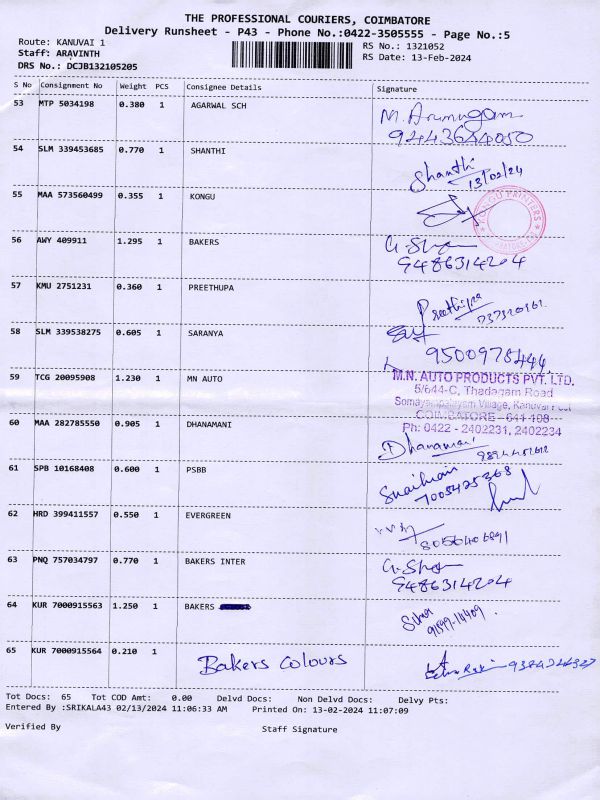 THE PROFESSIONAL COURIERS, COIMBATORE
Delivery Runsheet - P43 - Phone No.:0422-3505555 - Page No.:5
Route: KANUVAI 1
Staff: ARAVINTH
DRS No.: DCJB132105205
RS No.: 1321052
RS Date: 13-Feb-2024
S No Consignment No Weight PCS Consignee Details Signature
53 MTP 5034198 0.380 1 AGARWAL SCH
M. Arumugam
9443684050
54 SLM 339453685 0.770 1 SHANTHI
Shanthi
13/02/24
55 MAA 573560499 0.355 1 KONGU
KONGU PRINTERS
56 AWY 409911 1.295 1 BAKERS
9486314204
57 KMU 2751231 0.360 1 PREETHUPA
58 SLM 339538275 0.605 1 SARANYA
59 TCG 20095908 1.230 1 MN AUTO
M.N. AUTO PRODUCTS PVT. LTD.
5/644-C, Thadagam Road
Somayampalayam Village, Kanuvai Post
COIMBATORE - 641 108
Ph: 0422 - 2402231, 2402234
60 MAA 282785550 0.905 1 DHANAMANI
Dhanamani
61 SPB 10168408 0.600 1 PSBB
62 HRD 399411557 0.550 1 EVERGREEN
63 PNQ 757034797 0.770 1 BAKERS INTER
9486314204
64 KUR 7000915563 1.250 1 BAKERS
65 KUR 7000915564 0.210 1
Bakers Colours
Tot Docs: 65 Tot COD Amt: 0.00 Delvd Docs: Non Delvd Docs: Delvy Pts:
Entered By :SRIKALA43 02/13/2024 11:06:33 AM Printed On: 13-02-2024 11:07:09
Verified By Staff Signature